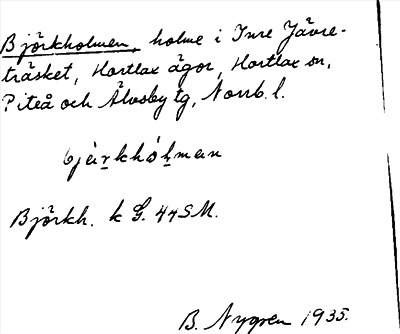 Björkholmen, holme i Inre Jävre-
träsket, Hortlax ägor, Hortlax sn,
Piteå och Älvsby tg, Norrb. l.
bjärkhólman
Björkh. k G. 44SM.
B. Nygren 1935.